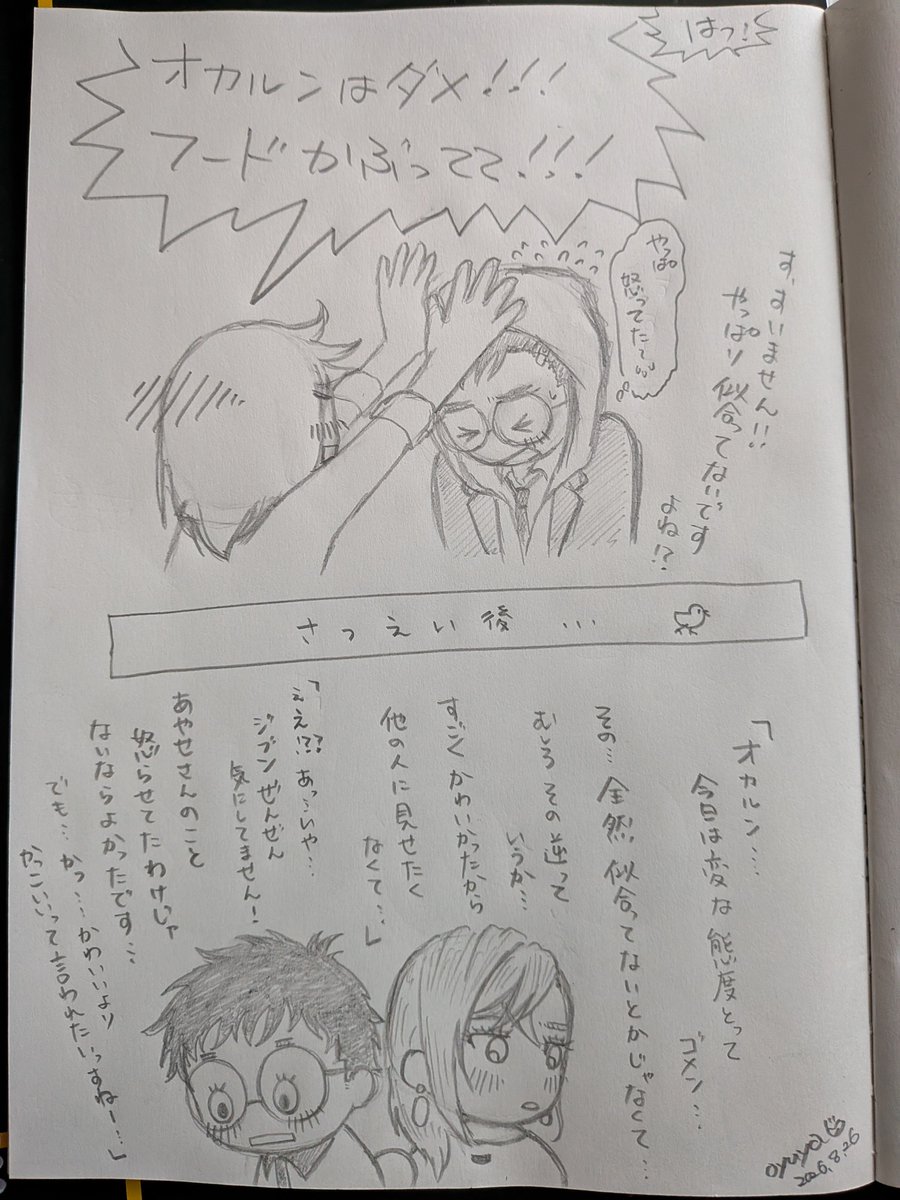 はっ!
オカルンはダメ!!!
フードかぶってて!!!
やっぱ
怒ってたー
す、すいません!!
やっぱり似合ってないです
よね!?
さつえい後…
「オカルン…
今日は変な態度とって
ゴメン…
その…全然似合ってないとかじゃなくて…
むしろその逆って
いうか…
すごくかわいかったから
他の人に見せたく
なくて…」
「ええ!??あっ…いや…
ジブンぜんぜん
気にしてません!
あやせさんのこと
怒らせてたわけじゃ
ないならよかったです…
でも…かっ…かわいいより
かっこいいって言われたいっすねー…」
2026.8.26